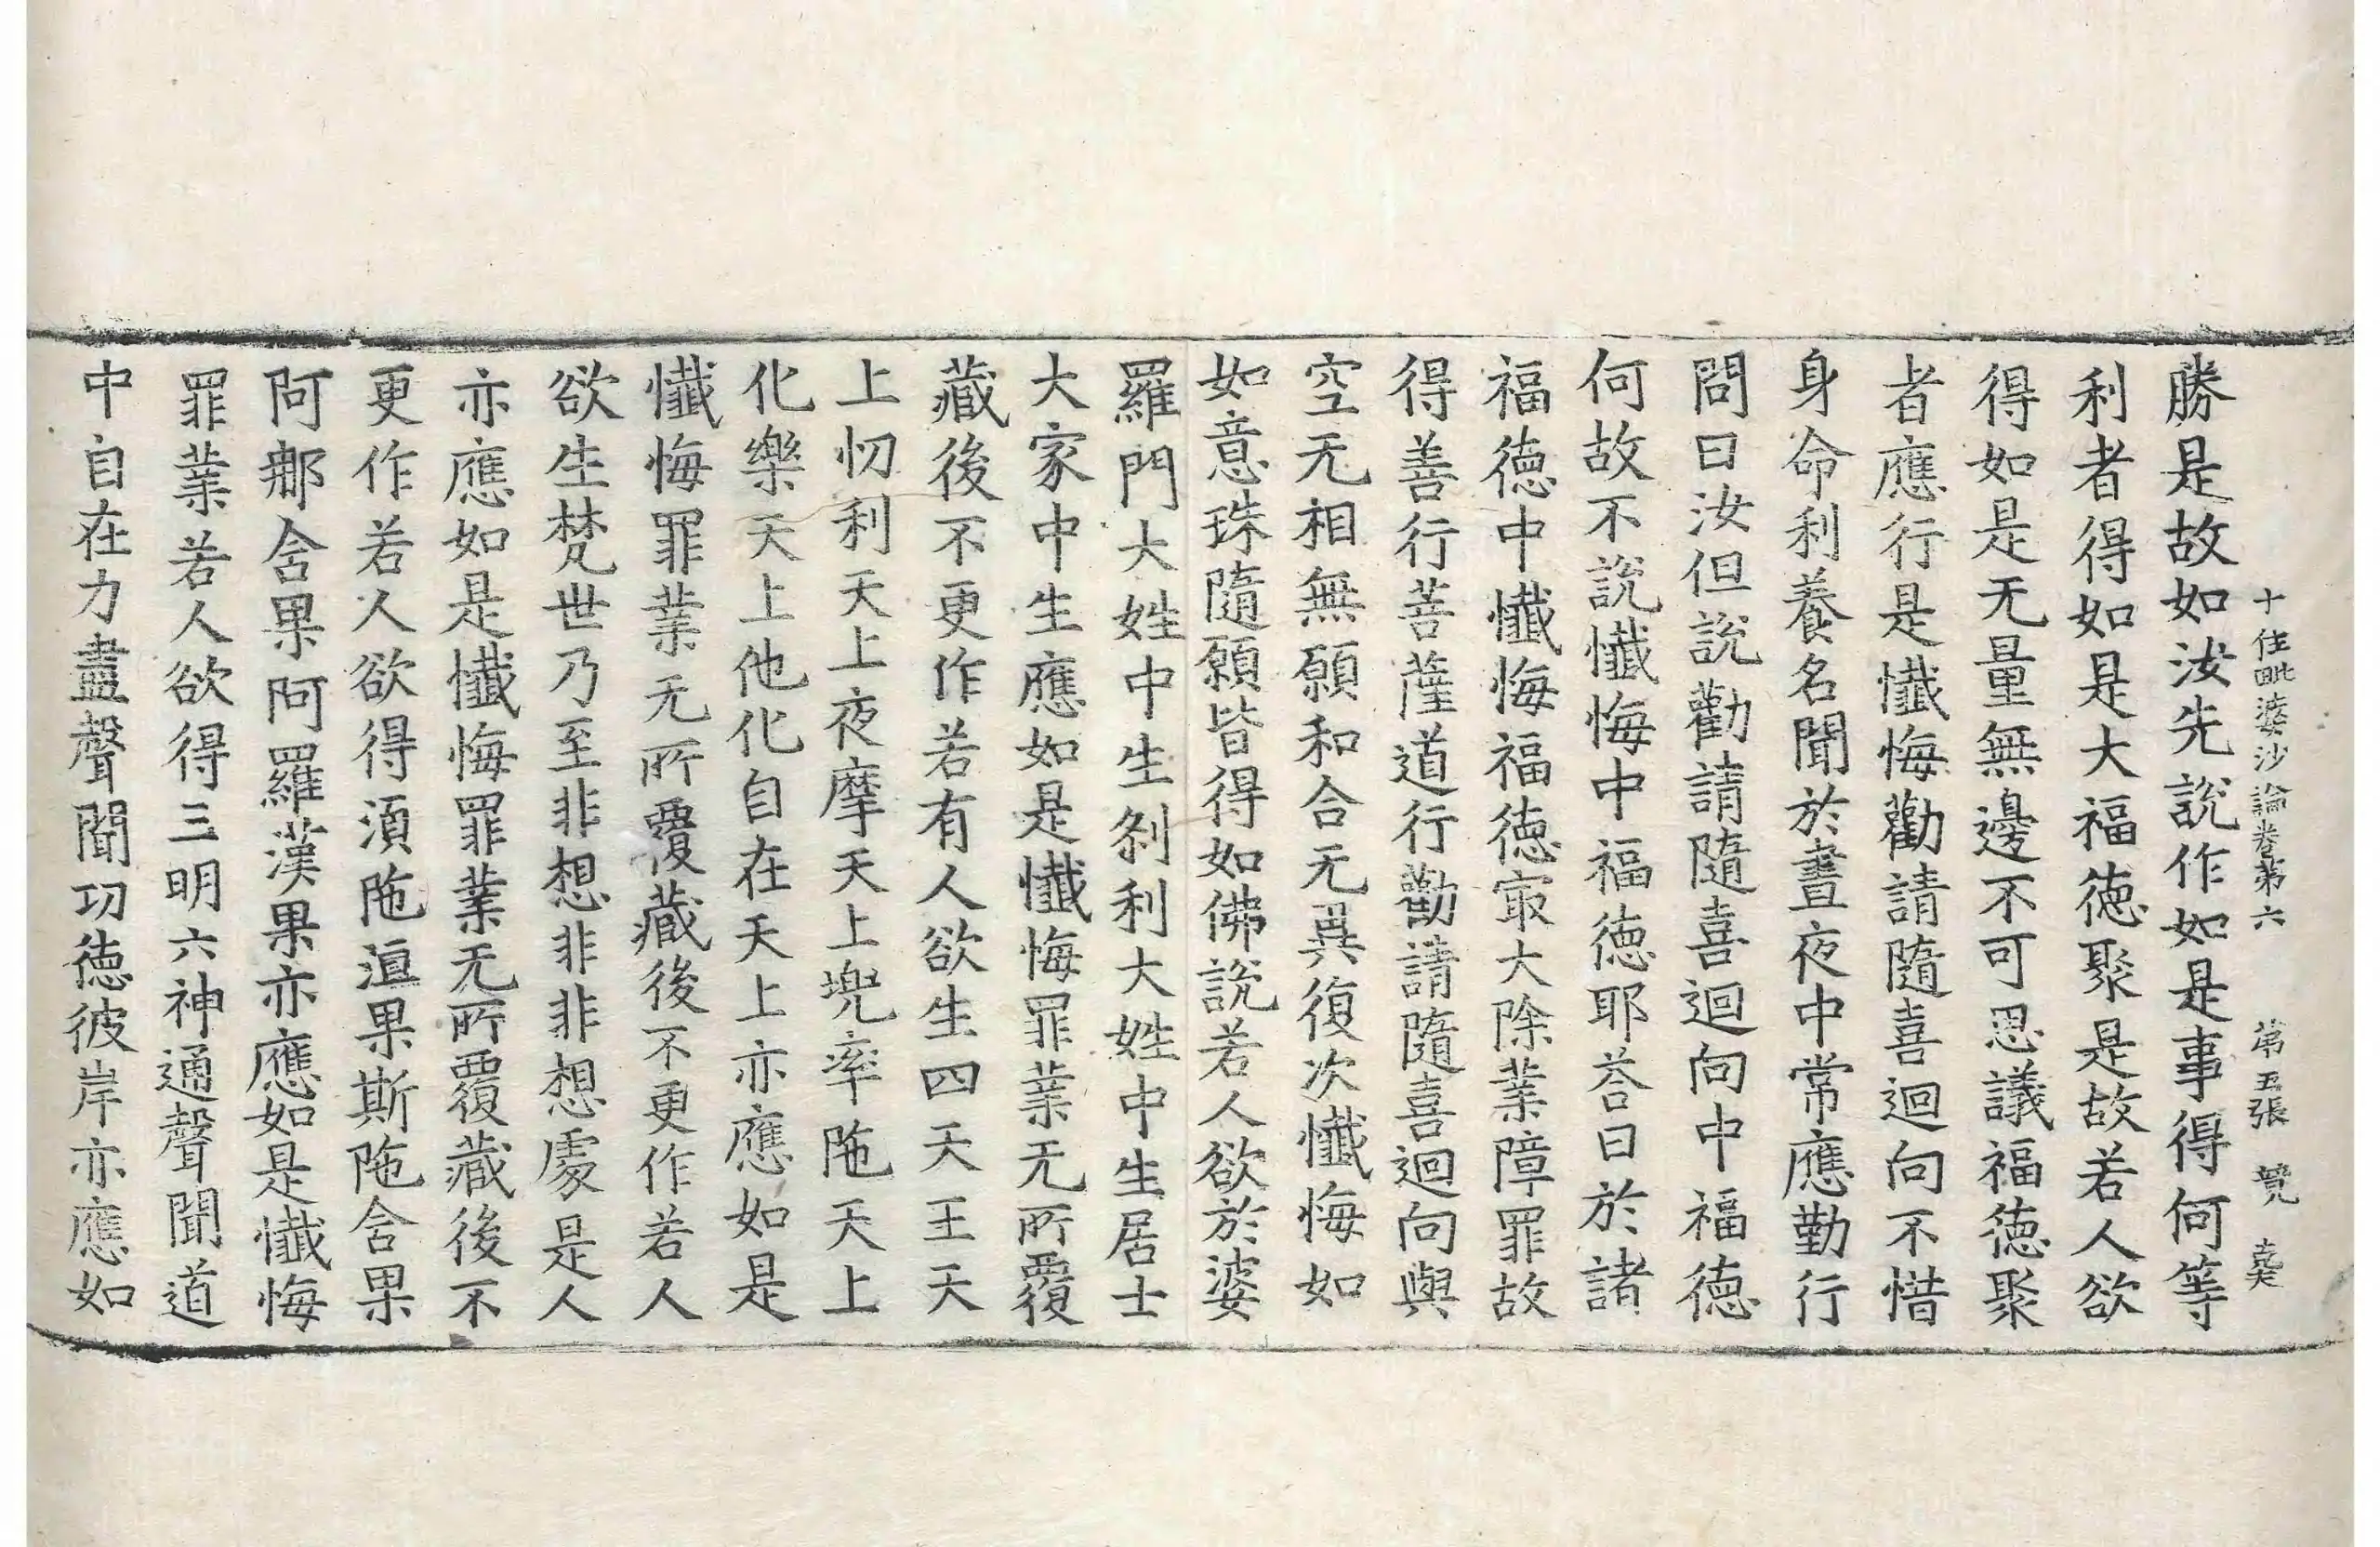 十住毗婆沙論卷第六　第五張
勝是故如汝先說作如是事得何等
利者得如是大福徳聚是故若人欲
得如是无量無邊不可思議福徳聚
者應行是懺悔勸請隨喜迴向不惜
身命利養名聞於晝夜中常應勤行
問曰汝但說勸請隨喜迴向中福徳
何故不說懺悔中福徳耶荅曰於諸
福徳中懺悔福徳冣大除業障罪故
得善行菩薩道行勸請隨喜迴向與
空无相無願和合无異復次懺悔如
如意珠隨願皆得如佛說若人欲於婆
羅門大姓中生剎利大姓中生居士
大家中生應如是懺悔罪業无所覆
藏後不更作若有人欲生四天王天
上忉利天上夜摩天上兜率陁天上
化樂天上他化自在天上亦應如是
懺悔罪業无所覆藏後不更作若人
欲生梵世乃至非想非非想處是人
亦應如是懺悔罪業无所覆藏後不
更作若人欲得湏陁洹果斯陁含果
阿那含果阿羅漢果亦應如是懺悔
罪業若人欲得三明六神通聲聞道
中自在力盡聲聞功徳彼岸亦應如